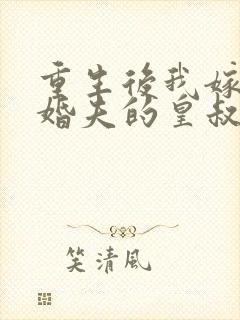 重生後我嫁
婚夫的皇叔
笑清風